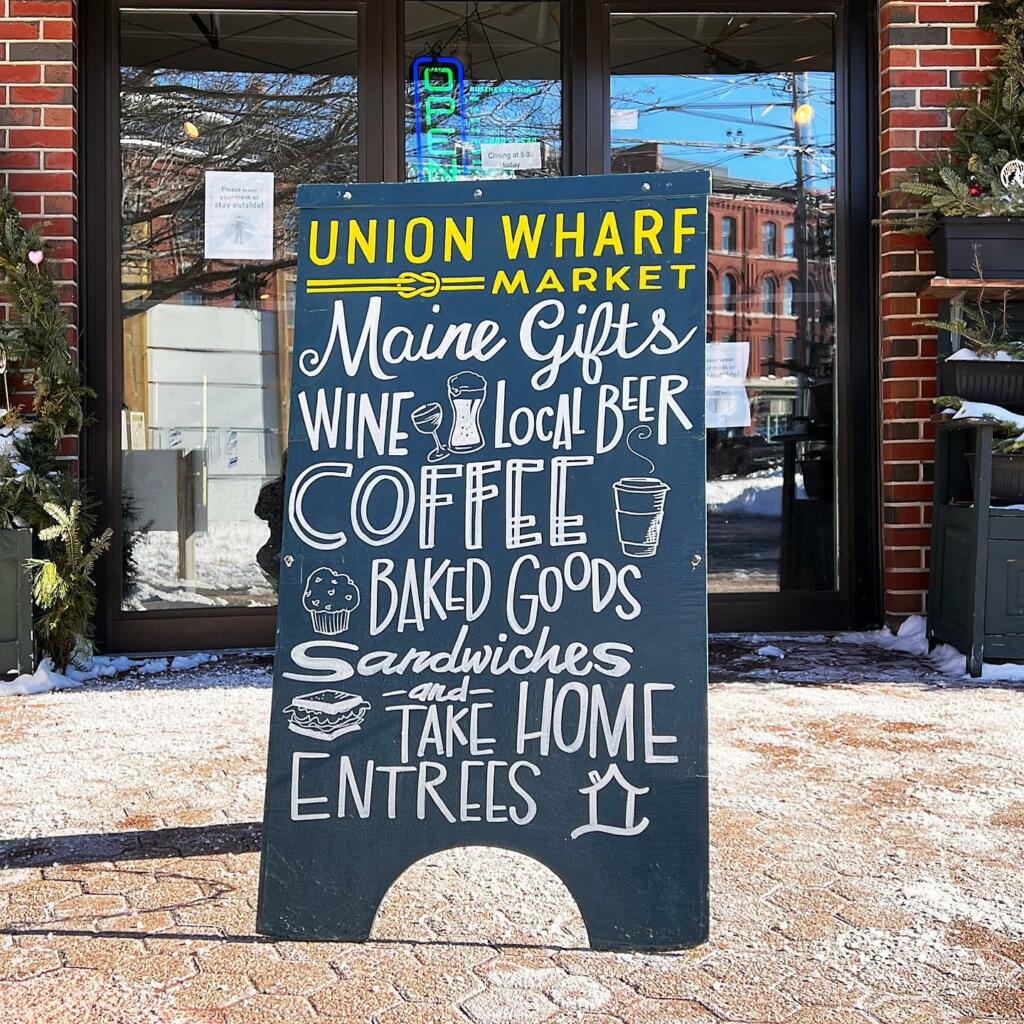 OPEN
BUSINESS HOURS
Closing at 5:00
today
Please wear
your mask or
stay outside!
UNION WHARF
MARKET
Maine Gifts
WINE LOCAL BEER
COFFEE
BAKED GOODS
Sandwiches
-and-
TAKE HOME
ENTREES